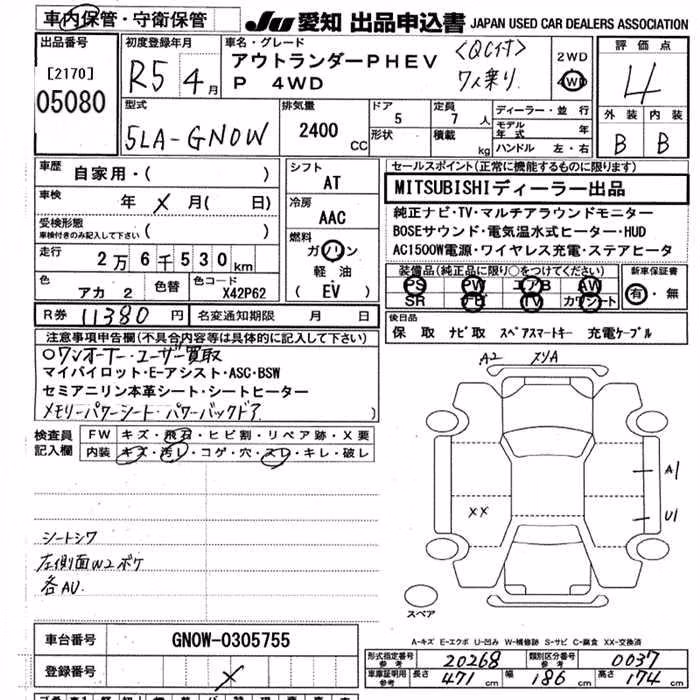 車内保管・守衛保管
JU 愛知 出品申込書 JAPAN USED CAR DEALERS ASSOCIATION
出品番号
[2170]
05080
初度登録年月
R5 4月
車名・グレード
アウトランダーPHEV
P 4WD
〈QC付〉
7人乗り.
2WD
4WD
評価点
4
外装 内装
B B
型式
5LA-GN0W
排気量
2400 CC
ドア
5
形状
定員
7 人
積載
kg
ディーラー・並行
モデル年式 年
ハンドル 左・右
車歴
自家用・( )
車検
年 × 月( 日)
受検形態
車検付きのみ記入して下さい ( )
走行
2万6千530km
色
アカ 2
色替
色コード
X42P62
シフト
AT
冷房
AAC
燃料
ガソリン
軽油
( EV )
セールスポイント(正常に機能するものに限ります)
MITSUBISHIディーラー出品
純正ナビ・TV・マルチアラウンドモニター
BOSEサウンド・電気温水式ヒーター・HUD
AC1500W電源・ワイヤレス充電・ステアヒータ
装備品(純正品に限り○をつけてください)
PS PW エアB AW
SR ナビ TV カワシート
新車保証書
有・無
R券 11380 円
名変通知期限 月 日
後日品
保 取 ナビ取 スペアスマートキー 充電ケーブル
注意事項申告欄(不具合内容等は具体的に記入して下さい)
○ワンオーナー・ユーザー買取
マイパイロット・E-アシスト・ASC・BSW
セミアニリン本革シート・シートヒーター
メモリーパワーシート・パワーバックドア )
検査員記入欄
FW キズ・飛石・ヒビ割・リペア跡・X要
内装 キズ・汚レ・コゲ・穴・スレ・キレ・破レ
シートシワ
左側面W2ボケ
各AU.
A2 スリA
A1
XX
U1
スペア
A-キズ E-エクボ U-凹み W-補修跡 S-サビ C-腐食 XX-交換済
車台番号 GN0W-0305755
登録番号 ×
形式指定番号 参考 20268 類別区分番号 参考 0037
車庫証明用 参考 長さ 471 cm 幅 186 cm 高さ 174 cm